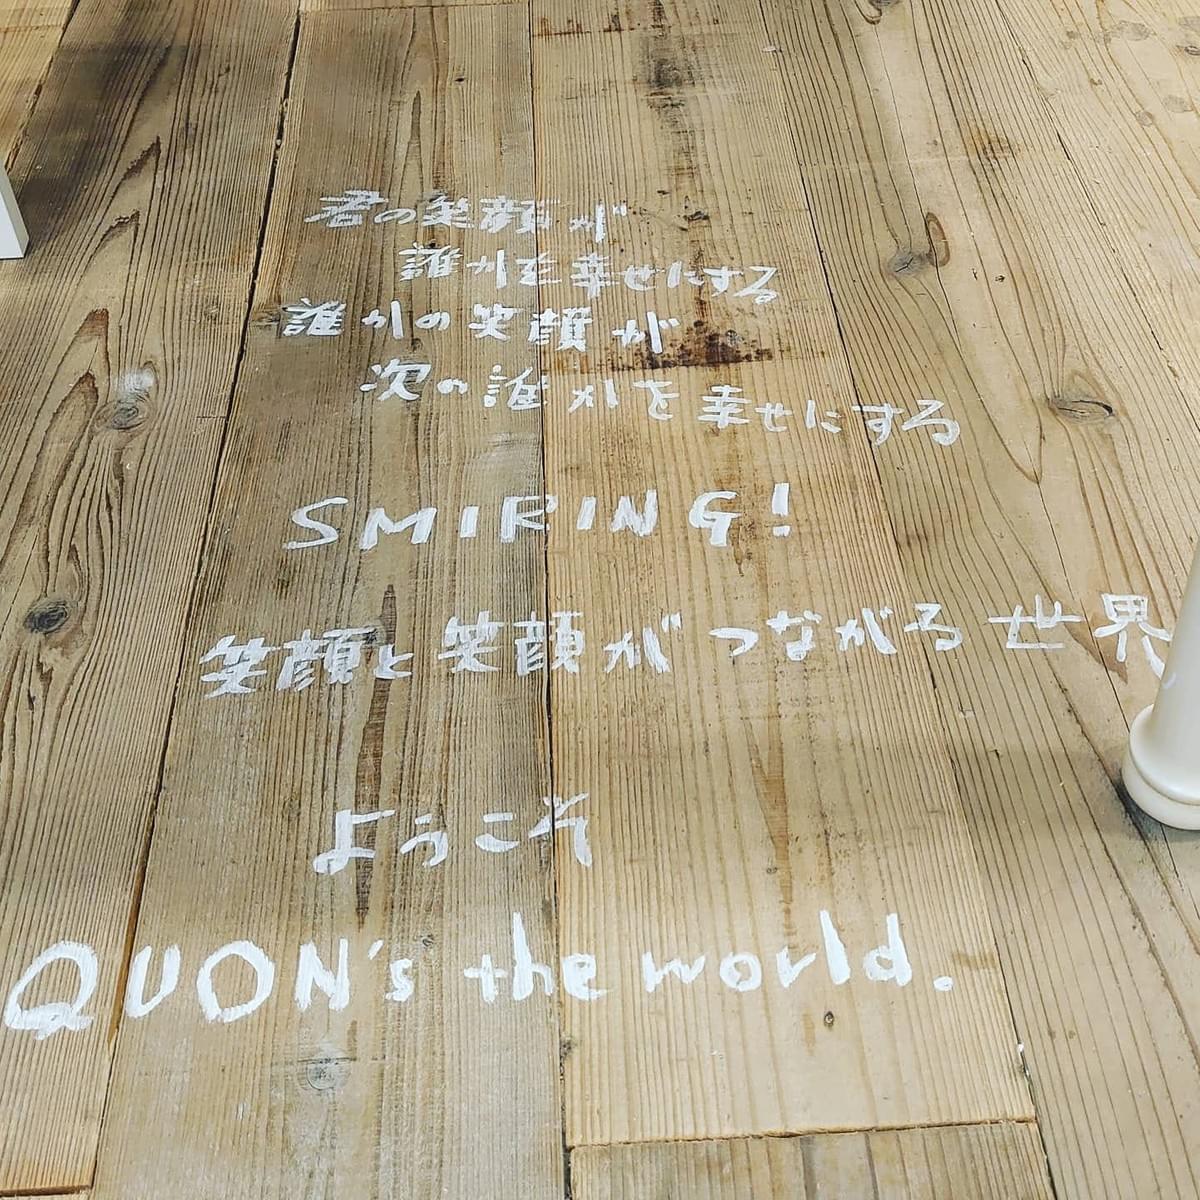 君の笑顔が
誰かを幸せにする
誰かの笑顔が
次の誰かを幸せにする
SMIRING!
笑顔と笑顔がつながる世界
ようこそ
QUON's the world.